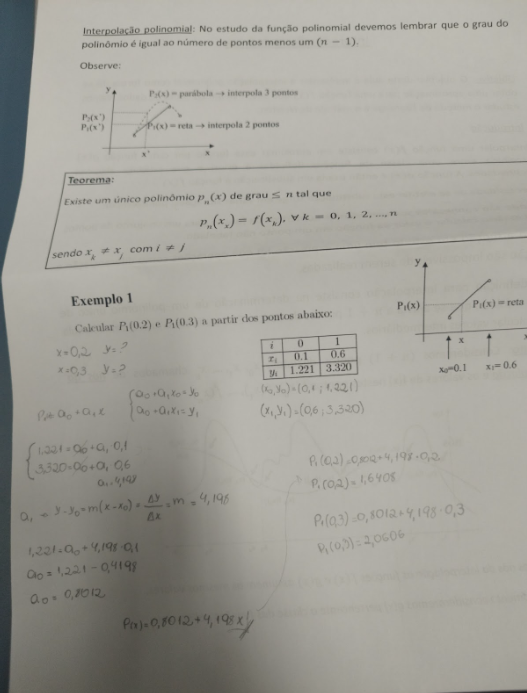 Interpolação polinomial: No estudo da função polinomial devemos lembrar que o grau do
polinômio é igual ao número de pontos menos um (n − 1).
Observe:
y
P₂(x) = parábola → interpola 3 pontos
P₂(x')
P₁(x')
P₁(x) = reta → interpola 2 pontos
x'
x
Teorema:
Existe um único polinômio pₙ(x) de grau ≤ n tal que
pₙ(xₖ) = f(xₖ), ∀ k = 0, 1, 2, ..., n
sendo xₖ ≠ xⱼ com i ≠ j
Exemplo 1
Calcular P₁(0.2) e P₁(0.3) a partir dos pontos abaixo:
i 0 1
xᵢ 0.1 0.6
yᵢ 1.221 3.320
y
P₁(x)
P₁(x) = reta
x
x₀=0.1 x₁= 0.6
x=0,2 y=?
x=0,3 y=?
(x₀,y₀)=(0,1 ; 1,221)
(x₁,y₁)=(0,6 ; 3,320)
P₁= a₀ + a₁x
a₀+a₁x₀=y₀
a₀+a₁x₁=y₁
1,221=a₀+a₁ 0,1
3,320=a₀+a₁ 0,6
a₁=4,198
a₁ → y-y₀=m(x-x₀)=Δy/Δx=m=4,198
1,221=a₀+4,198·0,1
a₀=1,221-0,4198
a₀=0,8012
P(x)=0,8012+4,198x
P₁(0,2)=0,8012+4,198·0,2
P₁(0,2)=1,6408
P₁(0,3)=0,8012+4,198·0,3
P₁(0,3)=2,0606